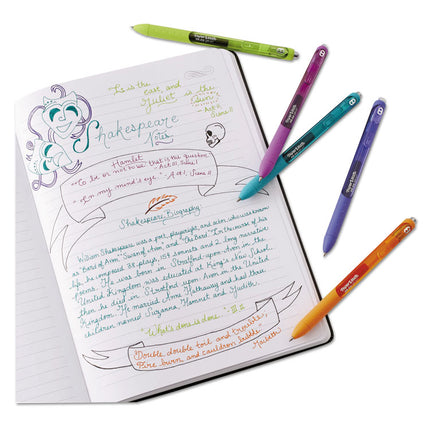 It is the
east, and
Juliet is the
Act II
Scene II
Shakespeare
Notes
Hamlet
"To be or not to be that is the question."
Act III, Scene I
"In my mind's eye." Act I, Scene II
Shakespeare Biography:
William Shakespeare was a poet, playwright, and actor, who was known
as "Bard of Avon" "Swan of Avon", and "The Bard." In the main of his
life he composed 38 plays, 154 sonnets and 2 long narrative
poems. He was born in Stratford-upon-Avon in the
United Kingdom, was educated at King's New School,
then he died in Stratford upon Avon in the United
Kingdom. He married Anne Hathaway and had three
children named Suzanna, Hamnet and Judith.
"What's done is done." III.II
"Double, double toil and trouble,
Fire burn and cauldron bubble."
Macbeth